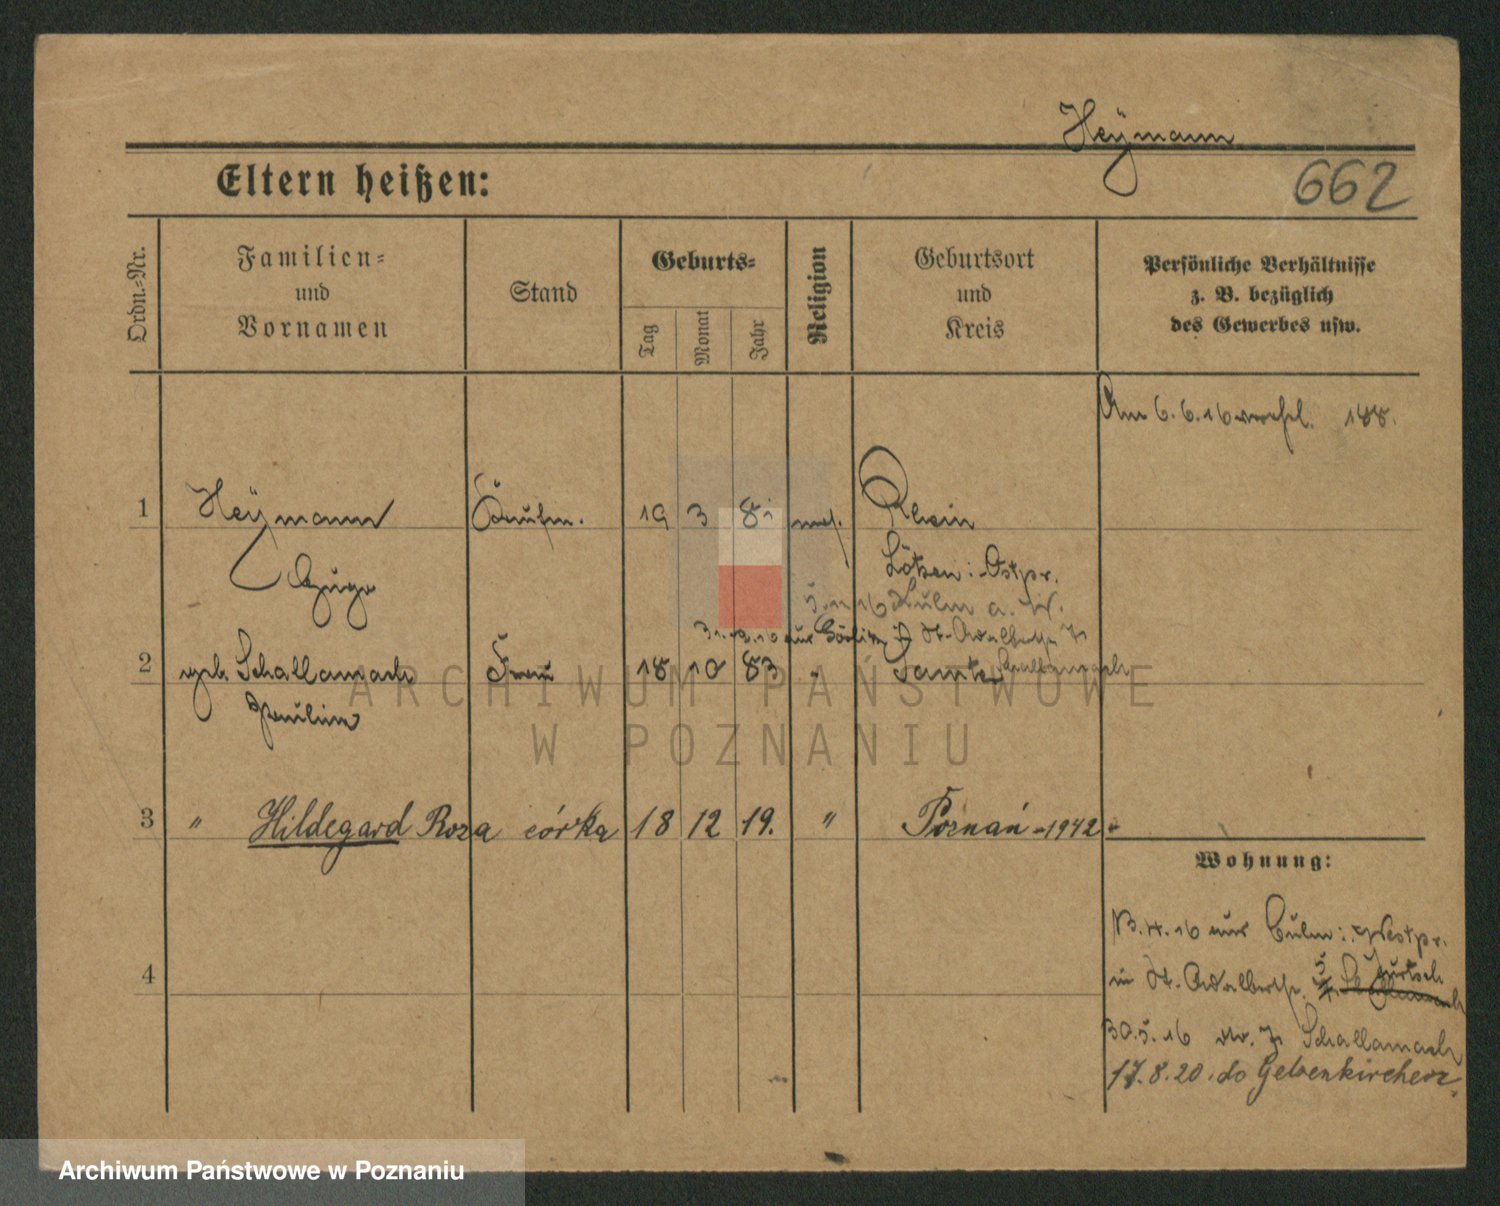 Heymann
Eltern heißen:
662
Ordn.-Nr.
Familien-
und
Vornamen
Stand
Geburts-
Tag
Monat
Jahr
Religion
Geburtsort
und
Kreis
Persönliche Verhältnisse
z. B. bezüglich
des Gewerbes usw.
Am 6.6.16 188.
1 Heymann Kaufm. 19 3 81 mos. Rhein
Hugo Lötzen i. Ostpr.
Kulm a. W.
St. Adalbertstr 7
2 geb. Schallamach Frau 18 10 83 " Samter Schallamach
Pauline
ARCHIWUM PAŃSTWOWE
W POZNANIU
3 " Hildegard Roza córka 18 12 19. " Poznań - 1942 -
Wohnung:
13.4.16 aus Culm i. Westpr.
4
in St. Adalbertstr.
30.5.16 7 Schallamach
17.8.20. do Gelsenkirchen
Archiwum Państwowe w Poznaniu